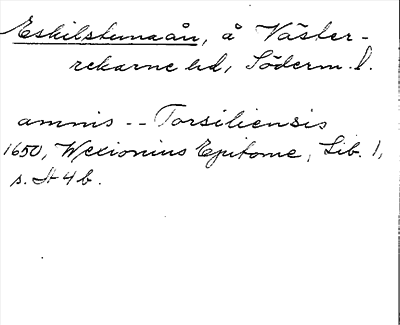 Eskilstunaån, å Väster-
rekarne hd, Söderm. l.
amnis -- Torsiliensis
1650, Wexionius Epitome, Lib. 1,
s. H 4 b.